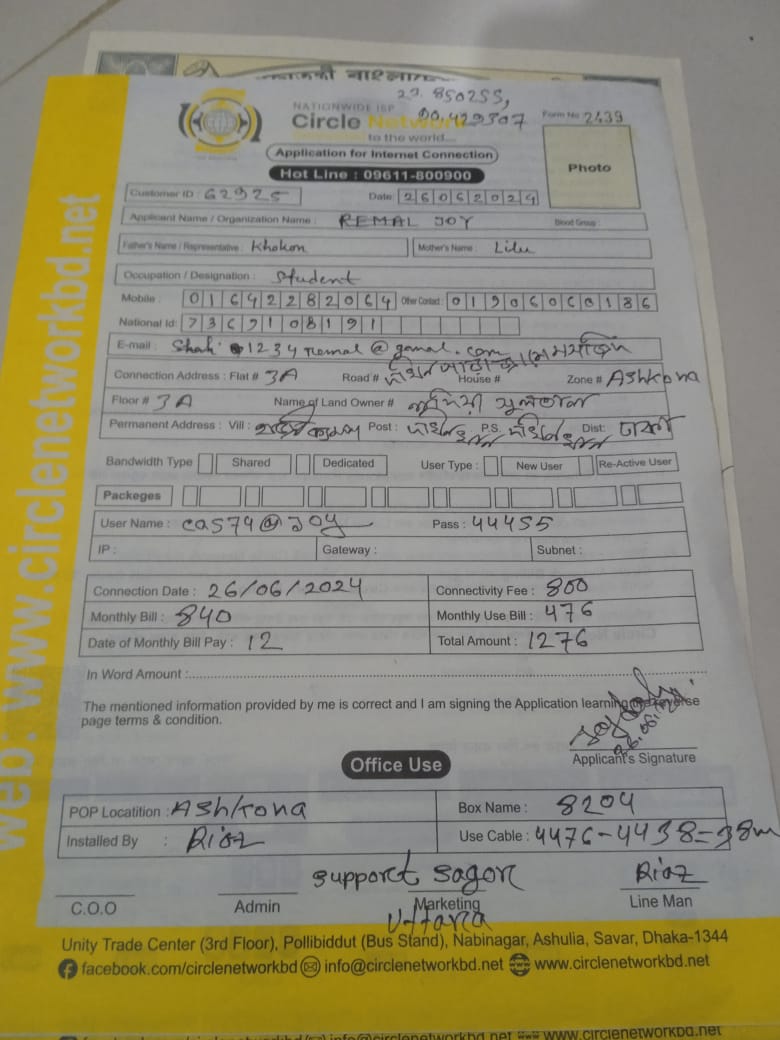 23.850255,
90.429307
NATIONWIDE ISP
Circle Network
to the world...
Form No 2439
Application for Internet Connection
Hot Line : 09611-800900
Photo
Customer ID : 62925 Date: 26062024
Applicant Name / Organization Name : REMAL JOY Blood Group :
Father's Name / Representative : Khokon Mother's Name : Lilu
Occupation / Designation : Student
Mobile : 01642282064 Other Contact : 01906060186
National Id: 7369108191
E-mail : Shah 1234 remal@gmal.com
Connection Address : Flat # 3A Road # House # Zone # Ashkona
Floor # 3A Name of Land Owner # সুলতানা
Permanent Address : Vill : Post : P.S. Dist: ঢাকা
Bandwidth Type Shared Dedicated User Type : New User Re-Active User
Packeges
User Name : cas74@Joy Pass : 44455
IP : Gateway : Subnet :
Connection Date : 26/06/2024 Connectivity Fee : 800
Monthly Bill : 840 Monthly Use Bill : 476
Date of Monthly Bill Pay : 12 Total Amount : 1276
In Word Amount :
The mentioned information provided by me is correct and I am signing the Application learning reverse
page terms & condition.
Applicant's Signature
Office Use
POP Locatition : Ashkona Box Name : 8204
Installed By : Riaz Use Cable : 4476-4438=38m
support Sagor Riaz
C.O.O Admin Marketing Line Man
Uttara
Unity Trade Center (3rd Floor), Pollibiddut (Bus Stand), Nabinagar, Ashulia, Savar, Dhaka-1344
facebook.com/circlenetworkbd info@circlenetworkbd.net www.circlenetworkbd.net
web: www.circlenetworkbd.net
info@circlenetworkbd.net www.circlenetworkbd.net